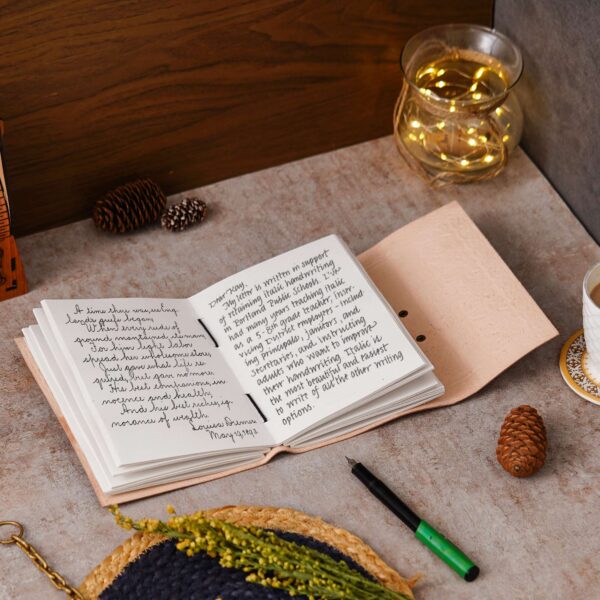 A time there was, ere England's griefs began,
When every rood of
ground maintained its man;
For him light labor
spread her wholesome store,
Just gave what life re-
quired, but gave no more:
His best companions, in-
nocence and health;
And his best riches, ig-
norance of wealth.
May 19, 1923
Dear Kay,
My letter is written in support
of retaining italic handwriting
in Portland Public Schools. I've
had many years teaching italic
as a 5-8th grade teacher, Instr-
ucting District employees, includ
ing principals, janitors, and
secretaries, and instructing
adults who want to improve
their handwriting. Italic is
the most beautiful and easiest
to write of all the other writing
options.